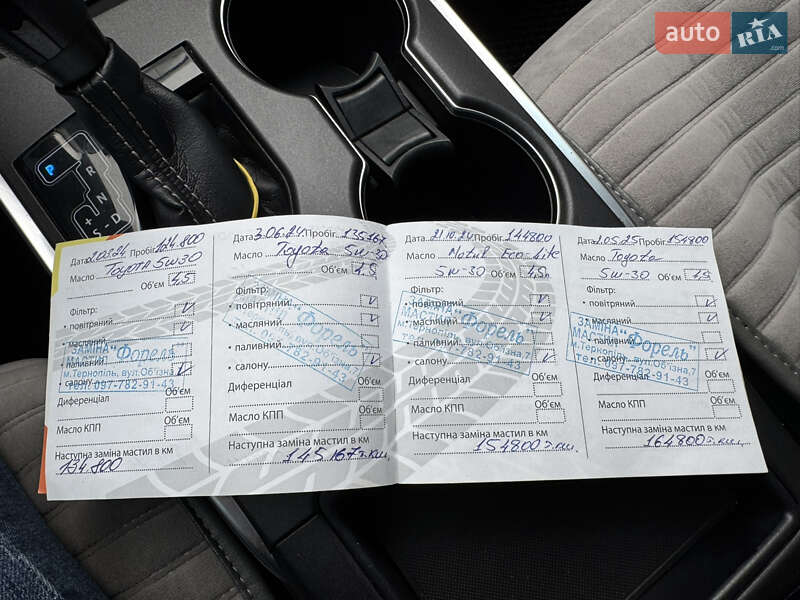 auto RIA .com
P
R
N
+
S - D
Дата Пробіг 124.800
Масло TOYOTA 5W30
Об'єм 4,5
Фільтр:
• повітряний V
• масляний V
• паливний
• салону V
ЗАМІНА "Форель"
МАСТИЛ
м.Тернопіль, вул.Об'їзна,7
тел.097-782-91-43
Диференціал Об'єм
Масло КПП Об'єм
Наступна заміна мастил в км
134.800
Дата 3.06.24 Пробіг 135167
Масло Toyota 5w-30
Об'єм 4,5
Фільтр:
• повітряний V
• масляний V
• паливний
• салону
Диференціал Об'єм
Масло КПП Об'єм
Наступна заміна мастил в км
145167 т.км.
Дата 21.10.24 Пробіг 144800
Масло Motul Eco-Lite
5w-30 Об'єм 4,5л
Фільтр:
• повітряний V
• масляний V
• паливний
• салону V
ЗАМІНА "Форель"
МАСТИЛ
м.Тернопіль, вул.Об'їзна,7
тел.097-782-91-43
Диференціал Об'єм
Масло КПП Об'єм
Наступна заміна мастил в км
154800 т.км.
Дата 1.05.25 Пробіг 154800
Масло Toyota
5w-30 Об'єм 4,5
Фільтр:
• повітряний V
• масляний V
• паливний
• салону V
ЗАМІНА "Форель"
МАСТИЛ
м.Тернопіль, вул.Об'їзна,7
тел.097-782-91-43
Диференціал Об'єм
Масло КПП Об'єм
Наступна заміна мастил в км
164800 т.км.